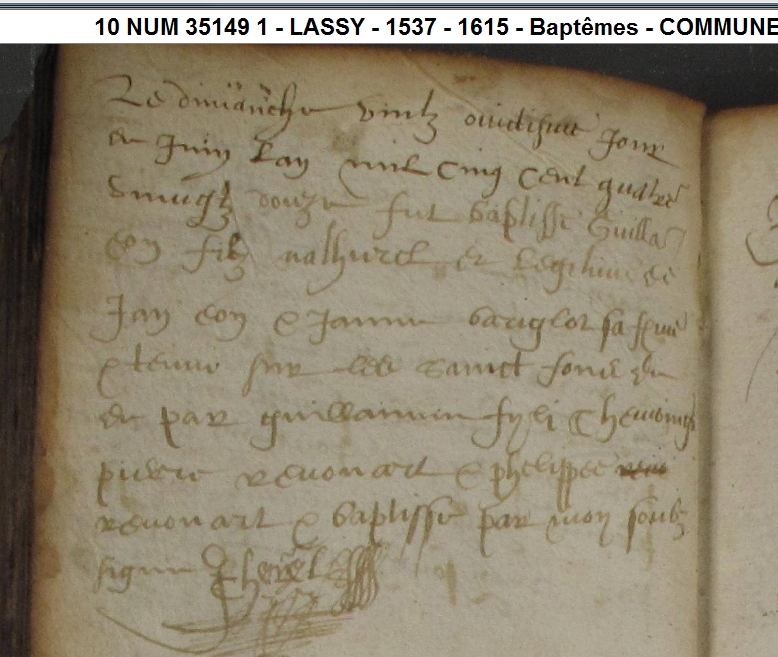 10 NUM 35149 1 - LASSY - 1537 - 1615 - Baptêmes - COMMUNE
Le dimanche vintz ouictisme jour
de Juin lan mil cinq cent quatre
vingtz douze fut baptisse Guilla
eon filz naturel et legitime de
Jan eon & Janne sa feme
& tenu sur les sainct fons de
de par guillaumme
pierre renouart & phelippee
renouart & baptisse par moy soubz
signe